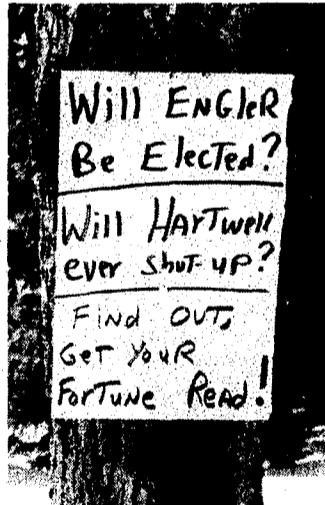 Will ENGleR
Be Elected?
Will HARTwell
ever shut-up?
FiNd OUT,
GeT YouR
ForTuNe ReAd!